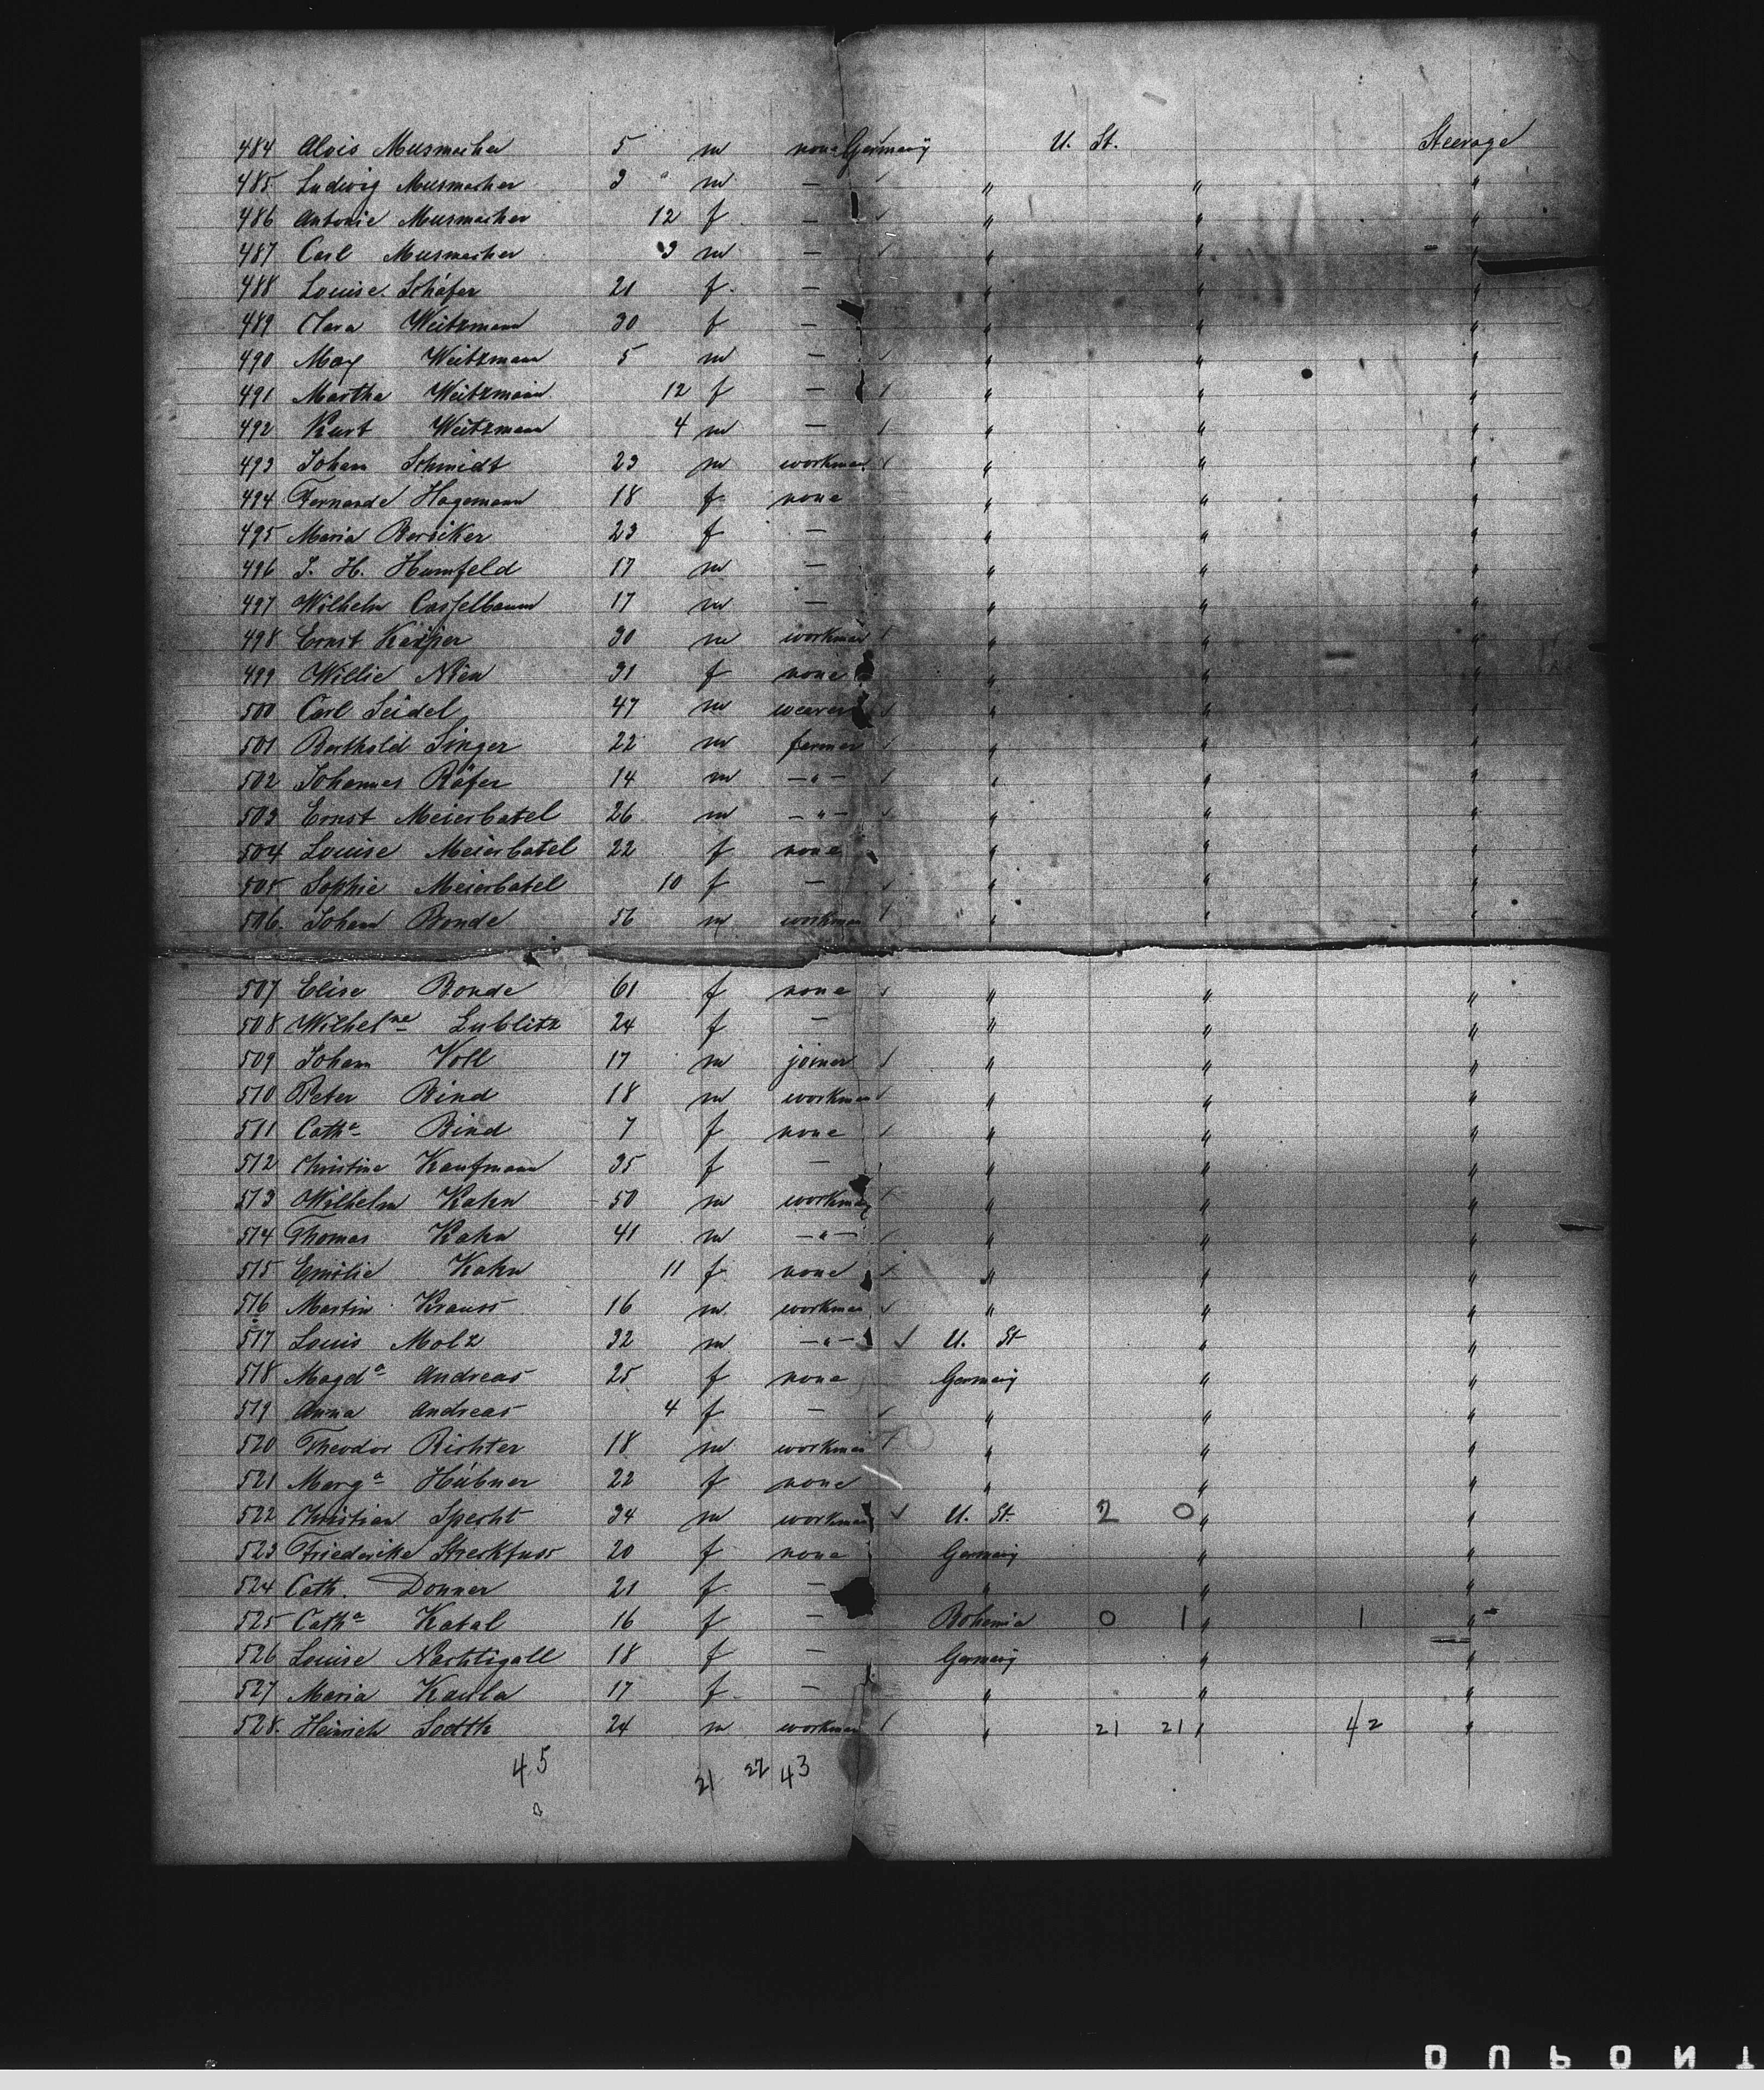 484 Alois Musmacher 5 m none Germany U. St. Steerage
485 Ludwig Musmacher 3 m — ✓ " " "
486 Antonie Musmacher 12 f — ✓ " " "
487 Carl Musmacher 3 m — ✓ " " "
488 Louise Schäfer 21 f — " " "
489 Clara Weitzmann 30 f — " " "
490 Max Weitzmann 5 m — ✓ " " "
491 Martha Weitzmann 12 f — ✓ " " "
492 Kurt Weitzmann 4 m — ✓ " " "
493 Johann Schmidt 23 m workman ✓ " " "
494 Fernande Hagemann 18 f none " " "
495 Maria 23 f — " " "
496 J. H. Humfeld 17 m — " " "
497 Wilhelm Casselbaum 17 m — " " "
498 Ernst 30 m workman ✓ " " "
499 Willie 31 f none " " "
500 Carl Seidel 47 m weaver ✓ " " "
501 Berthold Singer 22 m farmer ✓ " " "
502 Johannes Räfer 14 m —"— ✓ " " "
503 Ernst Meierbatel 26 m —"— ✓ " " "
504 Louise Meierbatel 22 f none " " "
505 Sophie Meierbatel 10 f — ✓ " " "
506. Johann Bonde 56 m workman ✓ " " "
507 Elise Bonde 61 f none ✓ " " "
508 Wilhelne Lublitz 24 f — " " "
509 Johann Voll 17 m joiner ✓ " " "
510 Peter Bind 18 m workman ✓ " " "
511 Catha Bind 7 f none ✓ " " "
512 Christine Kaufmann 35 f — " " "
513 Wilhelm Kahn 50 m workman ✓ " " "
514 Thomas Kahn 41 m —"— ✓ " " "
515 Emilie Kahn 11 f none ✓ " " "
516 Martin Krauss 16 m workman ✓ " " "
517 Louis Molz 32 m —"— ✓ U. St " "
518 Magda Andreas 25 f none Germany " "
519 Anna Andreas 4 f — ✓ " " "
520 Theodor Richter 18 m workman ✓ " " "
521 Marga Hübner 22 f none " " "
522 Christian Specht 34 m workman ✓ U. St. 2 0 " "
523 Friedericke Streckfuss 20 f none Germany " "
524 Cath. Donner 21 f — " " "
525 Catha Katal 16 f — Bohemia 0 1 " 1 "
526 Louise Nachtigall 18 f — Germany " "
527 Maria Kaula 17 f — " " "
528. Heinrich 24 m workman ✓ " 21 21 " 42 "
45 21 22 43
DUPONT